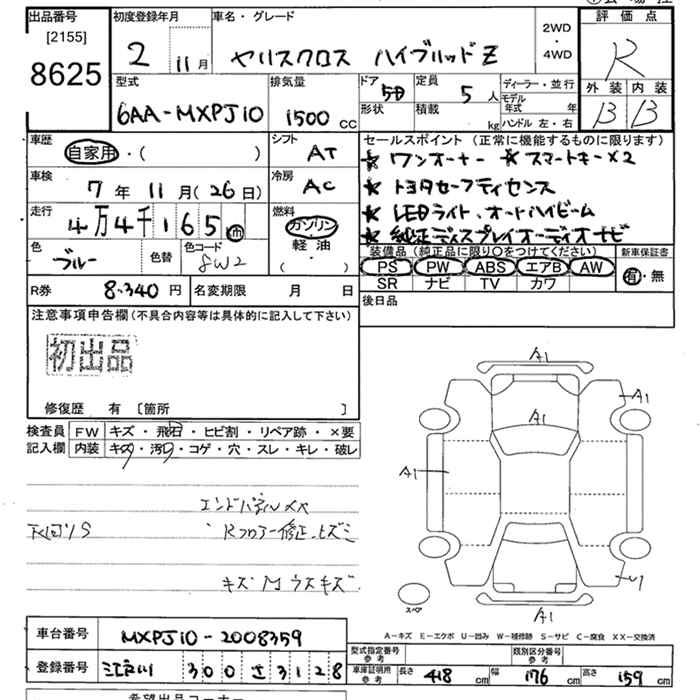 出品番号
[2155]
8625
初度登録年月
2 11月
車名・グレード
ヤリスクロス ハイブリッド Z
2WD
・
4WD
評価点
R
外装 内装
B B
型式
6AA-MXPJ10
排気量
1500 CC
ドア 5D
形状
定員 5 人
積載 kg
ディーラー・並行
モデル年式 年
ハンドル 左・右
車歴
自家用・( )
シフト
AT
車検
7年11月(26日)
冷房
AC
走行
4万4千165
燃料
ガソリン
軽油
( ・ )
色
ブルー
色替
色コード
8W2
セールスポイント (正常に機能するものに限ります)
★ワンオーナー ★スマートキー×2
★トヨタセーフティセンス
★LEDライト、オートハイビーム
★純正ディスプレイオーディオナビ
装備品 (純正品に限り○をつけてください)
PS PW ABS エアB AW
SR ナビ TV カワ
新車保証書
有・無
R券 8,340円
名変期限 月 日
後日品
注意事項申告欄 (不具合内容等は具体的に記入して下さい)
初出品
修復歴 有 〔箇所 〕
検査員
記入欄
FW キズ・飛石・ヒビ割・リペア跡・×要
内装 キズ・汚れ・コゲ・穴・スレ・キレ・破レ
エンドパネル
下回りS
Rフロアー修正、ヒズミ
キズ M ウスキズ
A1
A1
A1
A1
U1
A1
スペア
A-キズ E-エクボ U-凹み W-補修跡 S-サビ C-腐食 XX-交換済
車台番号 MXPJ10-2008359
登録番号 江戸川 300 さ 3128
型式指定番号
参考
類別区分番号
参考
車庫証明用
参考
長さ 418 cm 幅 176 cm 高さ 159 cm
希望出品コーナー